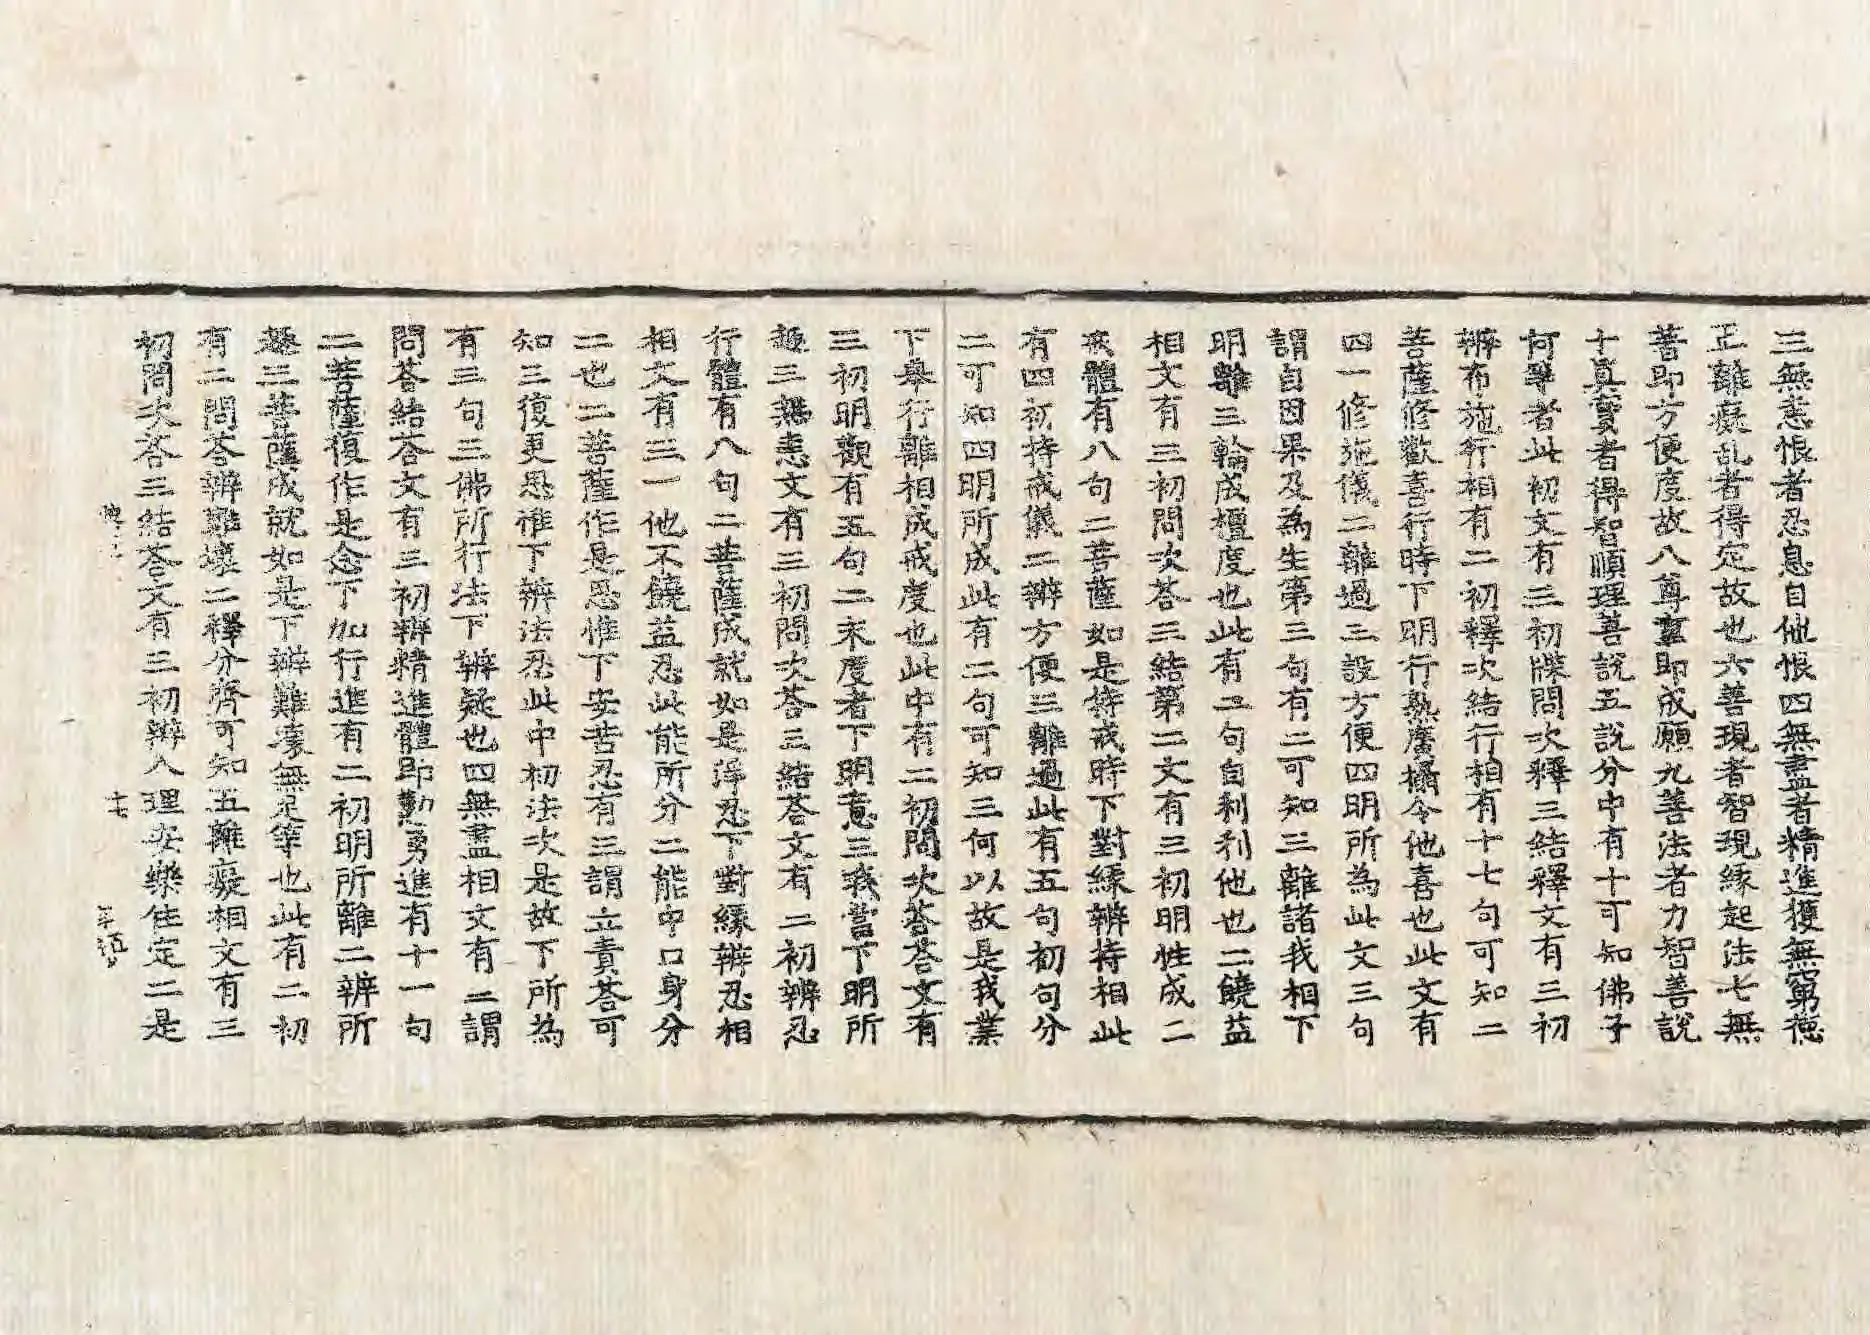 三無恚恨者忍息自他恨四無盡者精進獲無窮德
正離癡乱者得定故也六善現者智現緣起法七無
著即方便度故八尊重即成願九善法者力智善說
十真實者得智順理善說五說分中有十可知佛子
何等者此初文有三初牒問次釋三結釋文有三初
辨布施行相有二初釋次結行相有十七句可知二
菩薩修歡喜行時下明行熟廣攝令他喜也此文有
四一修施儀二離過三設方便四明所為此文三句
謂自因果及為生第三句有二可知三離諸我相下
明離三輪成檀度也此有二句自利利他也二饒益
相文有三初問次荅三結第二文有三初明性成二
戒體有八句二菩薩如是持戒時下對緣辨持相此
有四初持戒儀二辨方便三離過此有五句初句分
二可知四明所成此有二句可知三何以故是我業
下舉行離相成戒度也此中有二初問次荅荅文有
三初明觀有五句二未度者下明意三我當下明所
趣三無恚文有三初問次荅三結荅文有二初辨忍
行體有八句二菩薩成就如是淨忍下對緣辨忍相
相文有三一他不饒益忍此能所分二能中口身分
二也二菩薩作是思惟下安苦忍有三謂立責荅可
知三復更思惟下辨法忍此中初法次是故下所為
有三句三佛所行法下辨疑也四無盡相文有二謂
問荅結荅文有三初辨精進體即勤勇進有十一句
二菩薩復作是念下加行進有二初明所離二辨所
趣三菩薩成就如是下辨難壞無足等也此有二初
有二問荅辨難壞二釋分齊可知五離癡相文有三
初問次荅三結荅文有三初辨入理安樂住定二是
十七